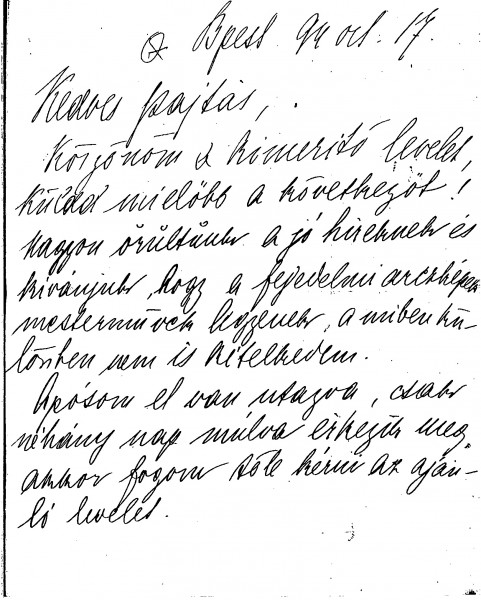 Bpest 94 oct. 17.
Kedves pajtás,
Köszönöm a kimeritő levelet,
küldd mielőbb a következőt!
Nagyon örültünk a jó hireknek és
kivánjuk, hogy a fejedelmi arczképek
mesterművek legyenek, a miben kü-
lönben nem is kételkedem.
Apósom el van utazva, csak
néhány nap múlva érkezik meg,
akkor fogom tőle kérni az aján-
ló levelet.